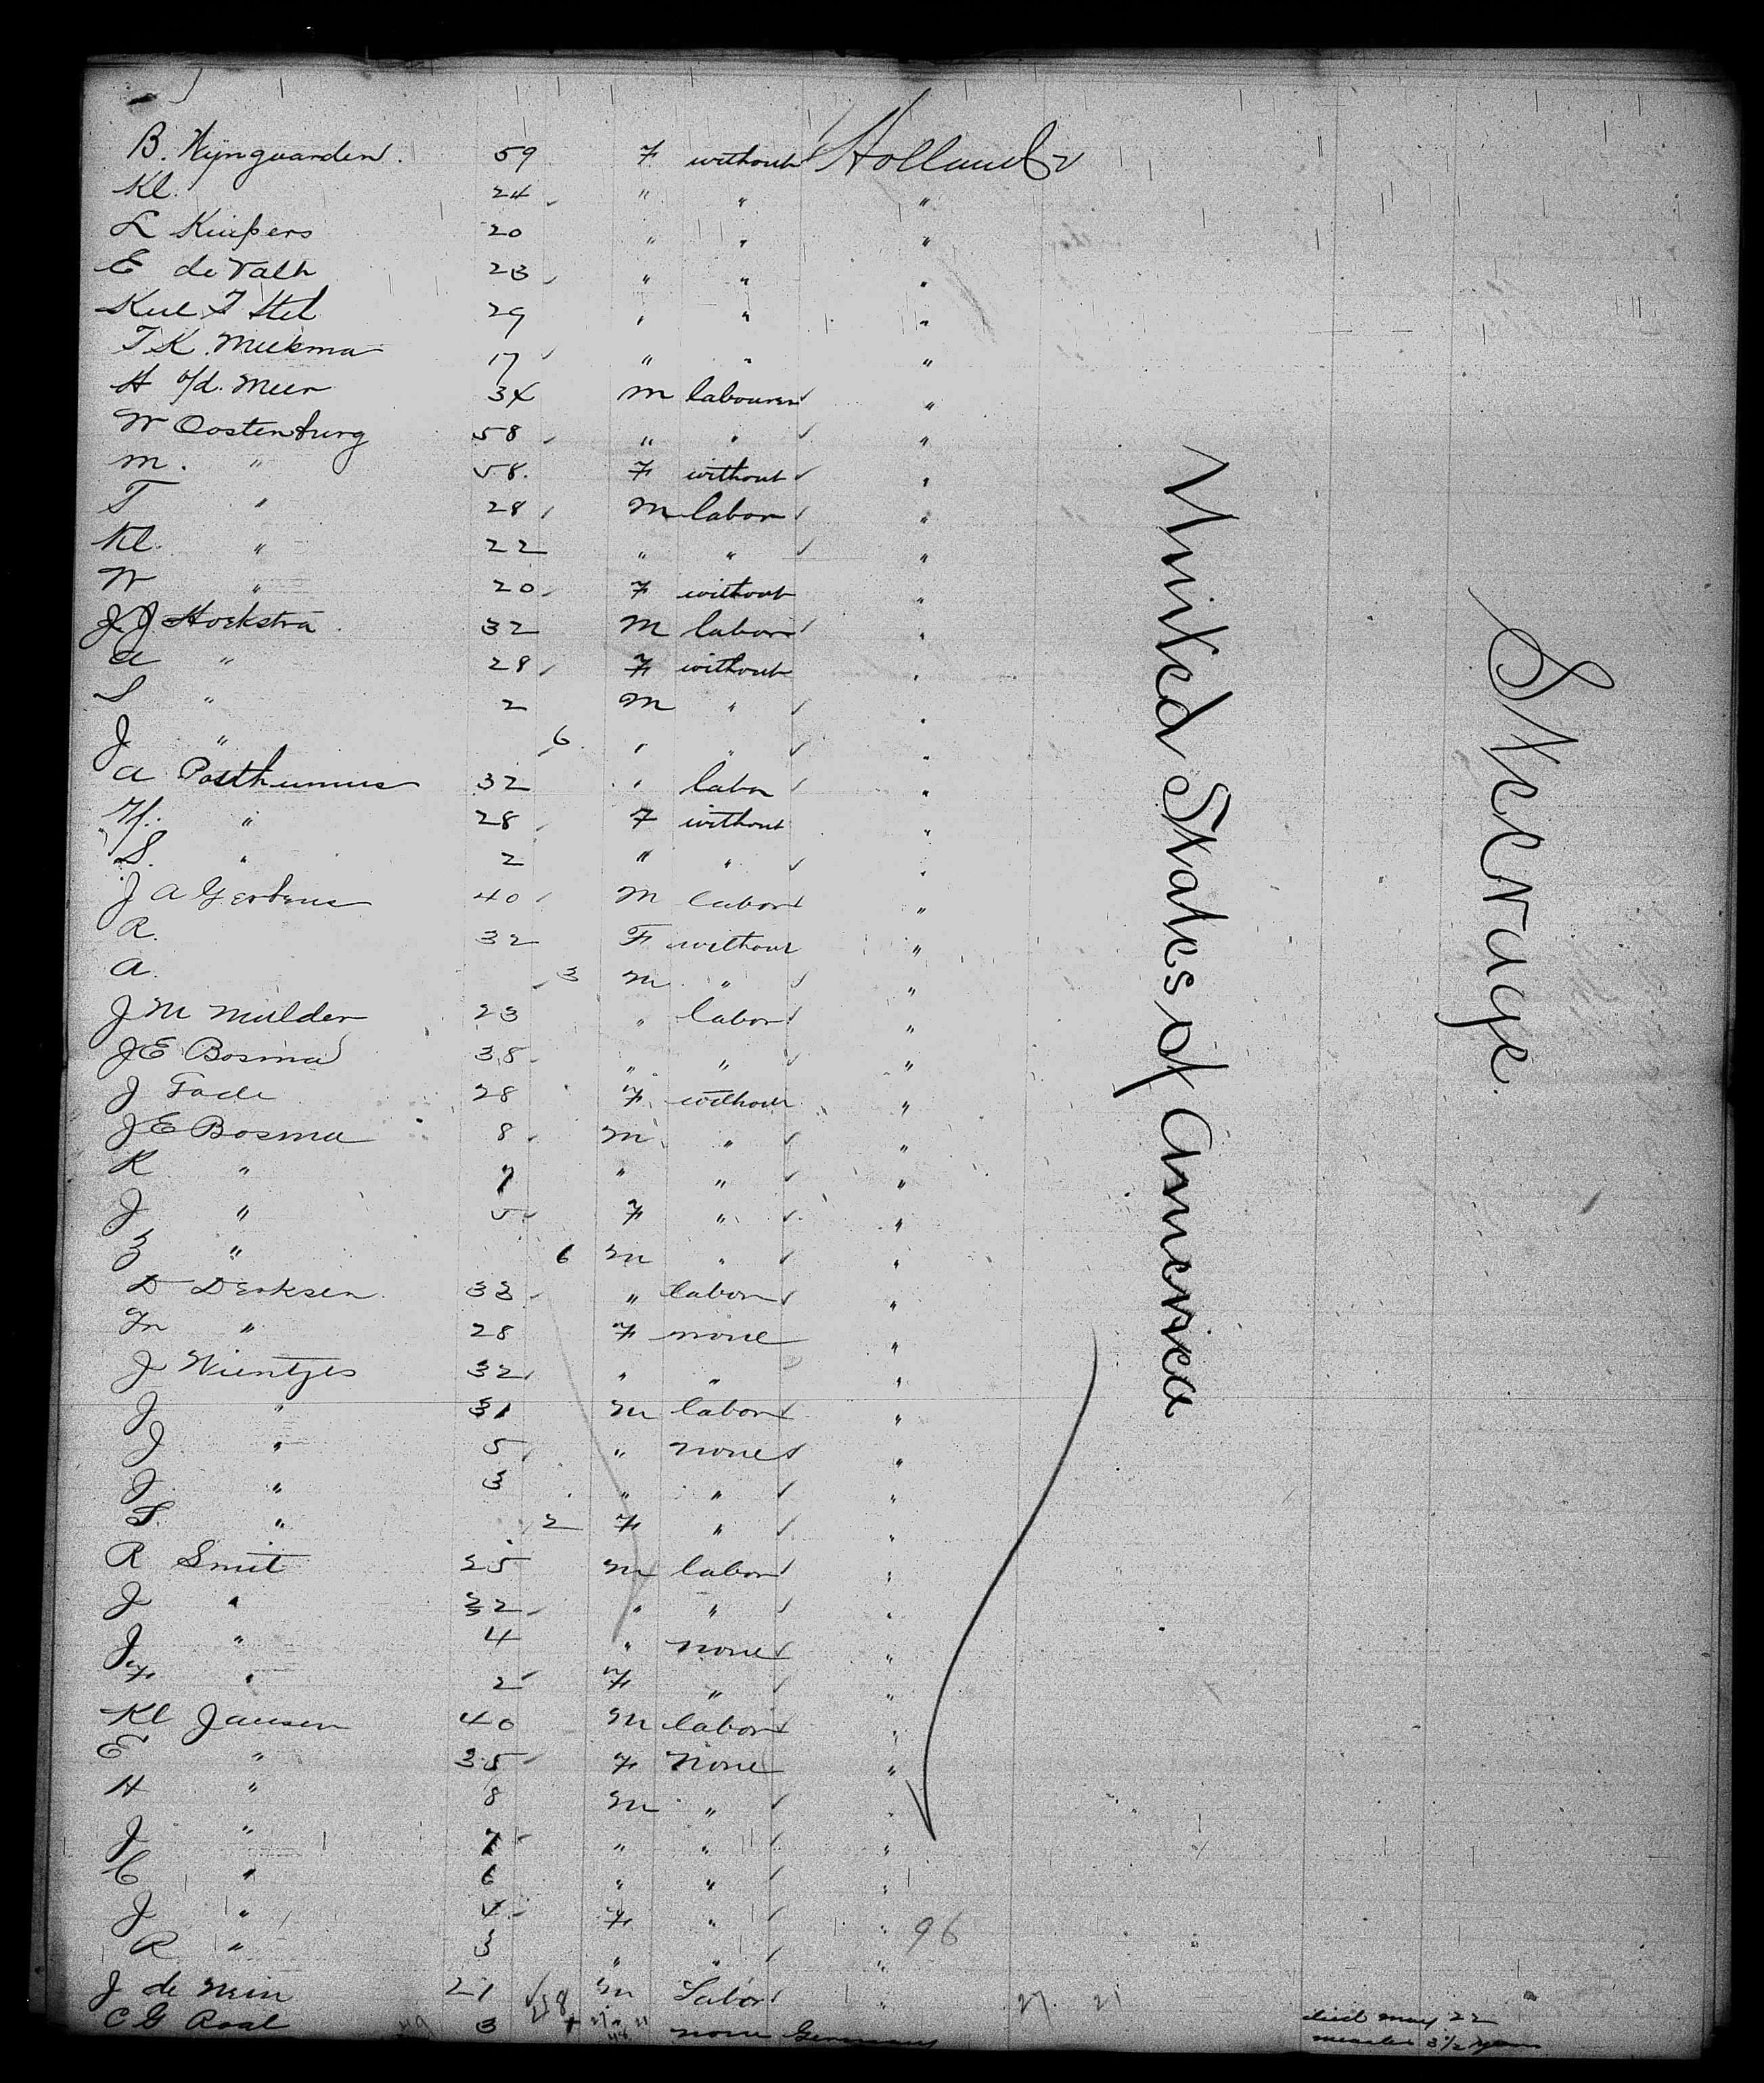 B. Wijngaarden. 59 F without Holland
Kl. 24 " " "
L Kuipers 20 " " "
E de Valk 23 " " "
29 " " "
T K. Miekma 17 " " "
H v/d. Meer 34 M labourer "
W Oostenburg 58 " " "
M. " 58. F without "
T " 28 M labor "
Kl. " 22 " " "
W " 20 F without "
J J Hoekstra 32 M labor "
A " 28 F without "
S " 2 M " "
J " 6 " " "
A Posthumus 32 " labor "
" 28 F without "
S. " 2 " " "
J A Gerbens 40 M labor "
R. 32 F without "
A. 3 M " "
J M Mulder 23 " labor "
J E Bosma 38 " " "
J 28 F without "
J E Bosma 8 M " "
K " 7 " " "
J " 5 F " "
Z " 6 M " "
D Derksen 33 " labor "
" 28 F none "
J Wientjes 32 " " "
J " 31 M labor "
J " 5 " none "
J " 3 " " "
S. " 2 F " "
R Smit 25 M labor "
J " 32 " " "
J " 4 " none "
F " 2 F " "
Kl Jansen 40 M labor "
E " 35 F None "
H " 8 M " "
J " 7 " " "
C " 6 " " "
J " 4 F " "
R " 3 " " "
96
J de 21 M Labor "
C G 3 none Germany died May 22
measles 3 1/2 years
United States of America
Steerage.